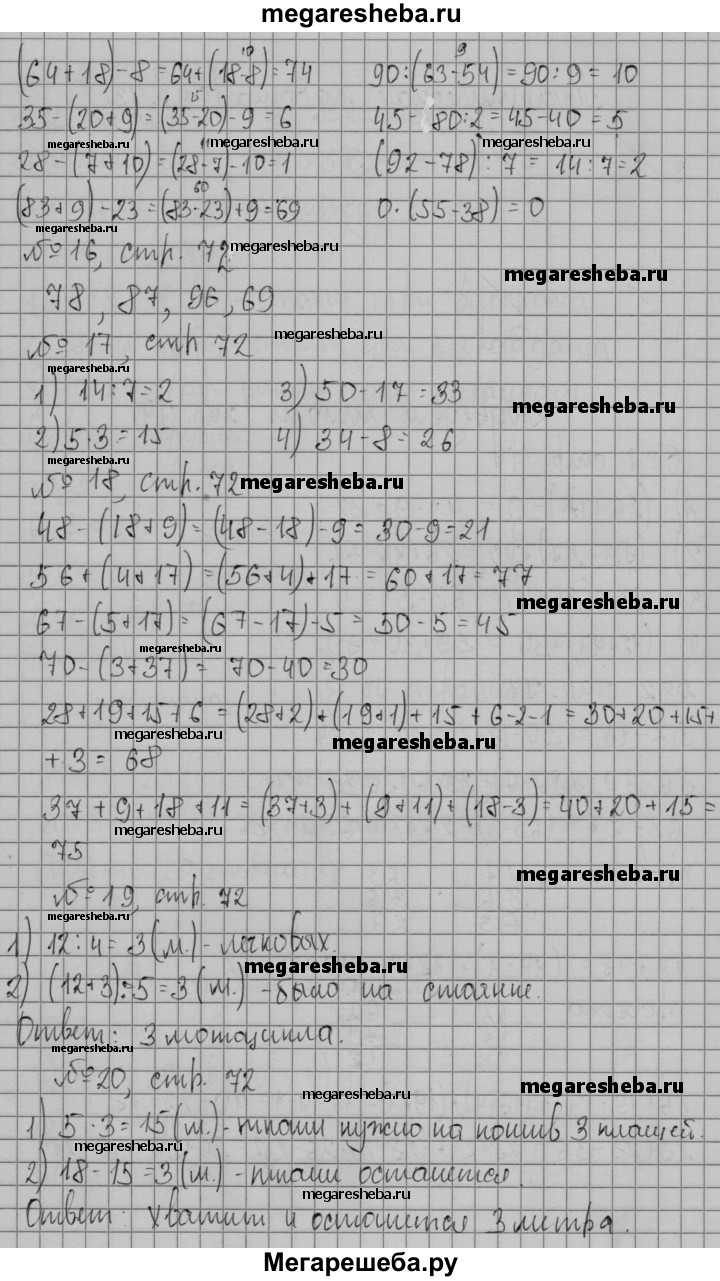 megaresheba.ru
10 9
(64+18)-8=64+(18-8)=74 90:(63-54)=90:9=10
15
35-(20+9)=(35-20)-9=6 45-80:2=45-40=5
megaresheba.ru megaresheba.ru megaresheba.ru
28-(7+10)=(28-7)-10=1 (92-78):7=14:7=2
60
(83+9)-23=(83-23)+9=69 0·(55-38)=0
megaresheba.ru
№16, стр. 72. megaresheba.ru
megaresheba.ru
78, 87, 96, 69
№ 17, стр 72 megaresheba.ru
megaresheba.ru
1) 14:7=2 3) 50-17=33
megaresheba.ru
2) 5·3=15 4) 34-8=26
megaresheba.ru
№ 18, стр. 72 megaresheba.ru
48-(18+9)=(48-18)-9=30-9=21
56+(4+17)=(56+4)+17=60+17=77
megaresheba.ru
67-(5+17)=(67-17)-5=50-5=45
megaresheba.ru
70-(3+37)=70-40=30
28+19+15+6=(28+2)+(19+1)+15+6-2-1=30+20+15+
megaresheba.ru megaresheba.ru
+3=68
37+9+18+11=(37+3)+(9+11)+(18-3)=40+20+15=
megaresheba.ru
75
megaresheba.ru
№19, стр. 72
megaresheba.ru
1) 12:4=3(м.)-легковых.
megaresheba.ru
2) (12+3):5=3(м.)-было на стоянке.
Ответ: 3 мотоцикла.
megaresheba.ru
№20, стр. 72 megaresheba.ru
megaresheba.ru
1) 5·3=15(м.)-ткани нужно на пошив 3 плащей.
megaresheba.ru
2) 18-15=3(м.)-ткани останется.
megaresheba.ru
Ответ: хватит и останется 3 метра.
Мегарешеба.ру